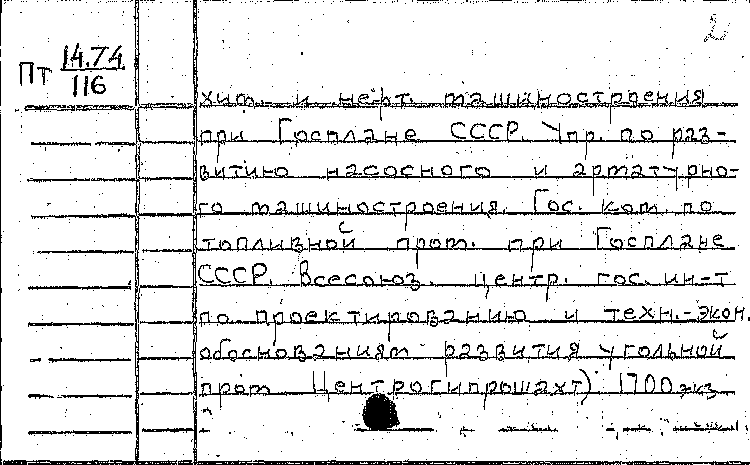 2
Пт 14.74
116
хим. и нефт. машиностроения
при Госплане СССР. Упр. по раз-
витию насосного и арматурно-
го машиностроения. Гос. ком. по
топливной пром. при Госплане
СССР. Всесоюз. центр. гос. ин-т
по проектированию и техн.-экон.
обоснованиям развития угольной
пром. Центрогипрошахт) 1700 экз